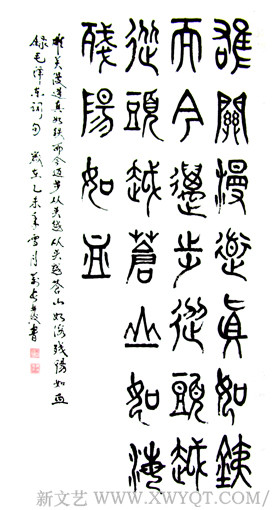 雄關漫道真如鐵
而今邁步從頭越
從頭越蒼山如海
殘陽如血
雄关漫道真如铁而今迈步从头越从头越苍山如海残阳如血
録毛泽东词句 岁在乙未年雪月
新文艺(WWW.XWYQT.COM/)